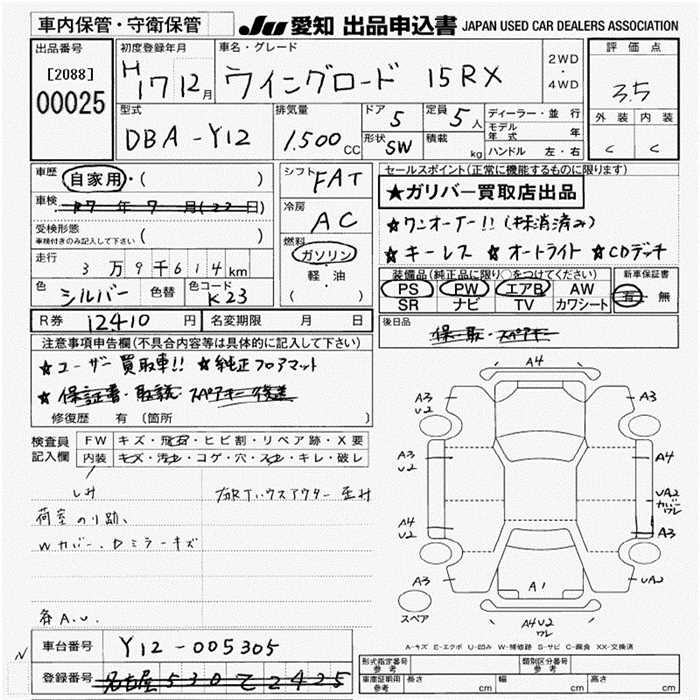 車内保管・守衛保管
JU 愛知 出品申込書 JAPAN USED CAR DEALERS ASSOCIATION
出品番号
[2088]
00025
初度登録年月
H17 12月
車名・グレード
ウイングロード 15RX
2WD
・
4WD
評価点
3.5
外装 内装
C C
型式
DBA-Y12
排気量
1.500CC
ドア
5
定員
5人
形状
SW
積載
kg
ディーラー・並行
モデル年式 年
ハンドル 左・右
車歴
自家用・( )
車検
17年9月(22日)
受検形態
車検付きのみ記入して下さい ( )
走行
3万9千614km
色
シルバー
色替
色コード
K23
シフト
FAT
冷房
AC
燃料
ガソリン
・
軽・油
( )
セールスポイント(正常に機能するものに限ります)
★ガリバー買取店出品
★ワンオーナー!!(抹消済み)
★キーレス ★オートライト ★CDデッキ
装備品(純正品に限り○をつけてください)
PS PW エアB AW
SR ナビ TV カワシート
新車保証書
有 無
R券 12410円
名変期限 月 日
後日品
保・取・スペアキー
注意事項申告欄(不具合内容等は具体的に記入して下さい)
★ユーザー買取車!! ★純正フロアマット
★保証書・取説・スペアキー後送
修復歴 有 (箇所 )
検査員記入欄
FW キズ・飛石・ヒビ割・リペア跡・X要
内装 キズ・汚れ・コゲ・穴・スレ・キレ・破レ
シミ
荷室のり跡、
Wカバー、Dミラーキズ
各A.U.
A4
A3
U2
A3
A3
U2
A4
UA2
カバー
ワレ
A4
U2
A3
A3
UA2
A1
スペア
A4U2
ワレ
A-キズ E-エクボ U-凹み W-補修跡 S-サビ C-腐食 XX-交換済
車台番号
Y12-005305
N
登録番号
名古屋 530 て 2425
形式指定番号
参考
類別区分番号
参考
車庫証明長さ
参考 cm
幅 cm
高さ cm